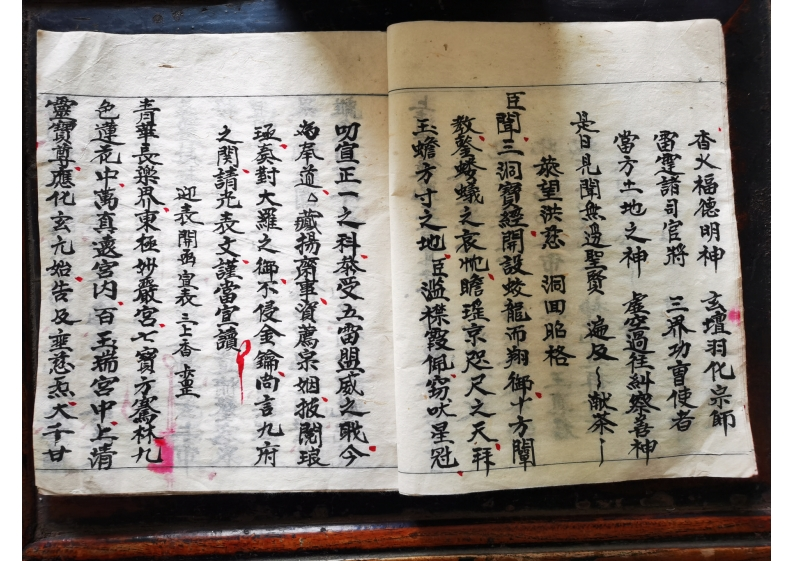 香火福德明神　玄壇羽化宗師
雷霆諸司官將　三界功曹使者
當方土地之神　虛空過往糾察善神
是日見聞無邊聖賢　遍及〻献茶〻
恭望洪慈　洞回昭格
臣聞三洞寶經開設蛟龍而翔御十方闡
教鑒蟻之哀忱瞻瑤京咫尺之天拜
玉蟾方寸之地臣滥襟霞佩窃吠星冠
叨宣正一之科恭受五雷盟威之戝今
為奉道△藏揚齋事資薦宗姻报閱琅
函奏對大羅之御不侵金鑰尚言九府
之関請光表文謹當宣讀
迎表開函宣表三上香㐀
青華長樂界東極妙嚴宮七寶方騫林九
色蓮花中萬真遶宮内百玉瑞宮中上清
靈寶尊應化玄元始告及垂慈炁大千甘